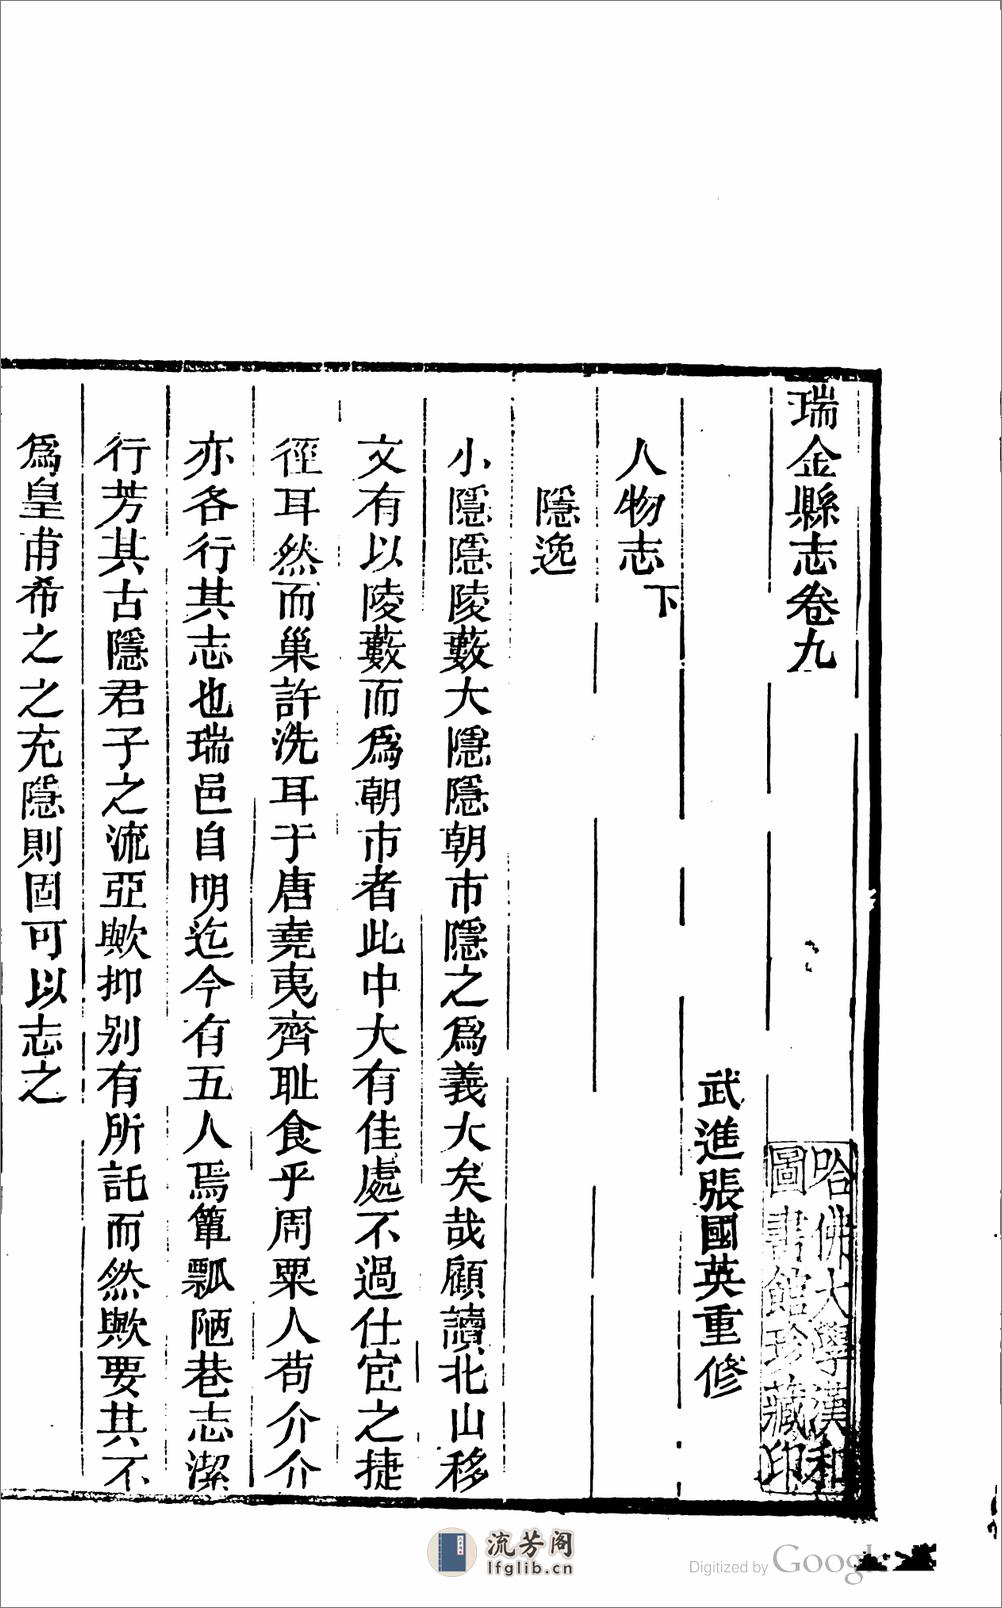 瑞金縣志卷九
武進張國英重修
人物志下
隱逸
小隱隱陵藪大隱隱朝市隱之爲義大矣哉顧讀北山移
文有以陵藪而爲朝市者此中大有佳處不過仕宦之捷
徑耳然而巢許洗耳于唐堯夷齊耻食乎周粟人苟介介
亦各行其志也瑞邑自明迄今有五人焉簞瓢陋巷志潔
行芳其古隱君子之流亞歟抑別有所託而然歟要其不
爲皇甫希之之充隱則固可以志之
哈佛大學漢和
圖書館珍藏印
流芳阁
lfglib.cn
Digitized by Google